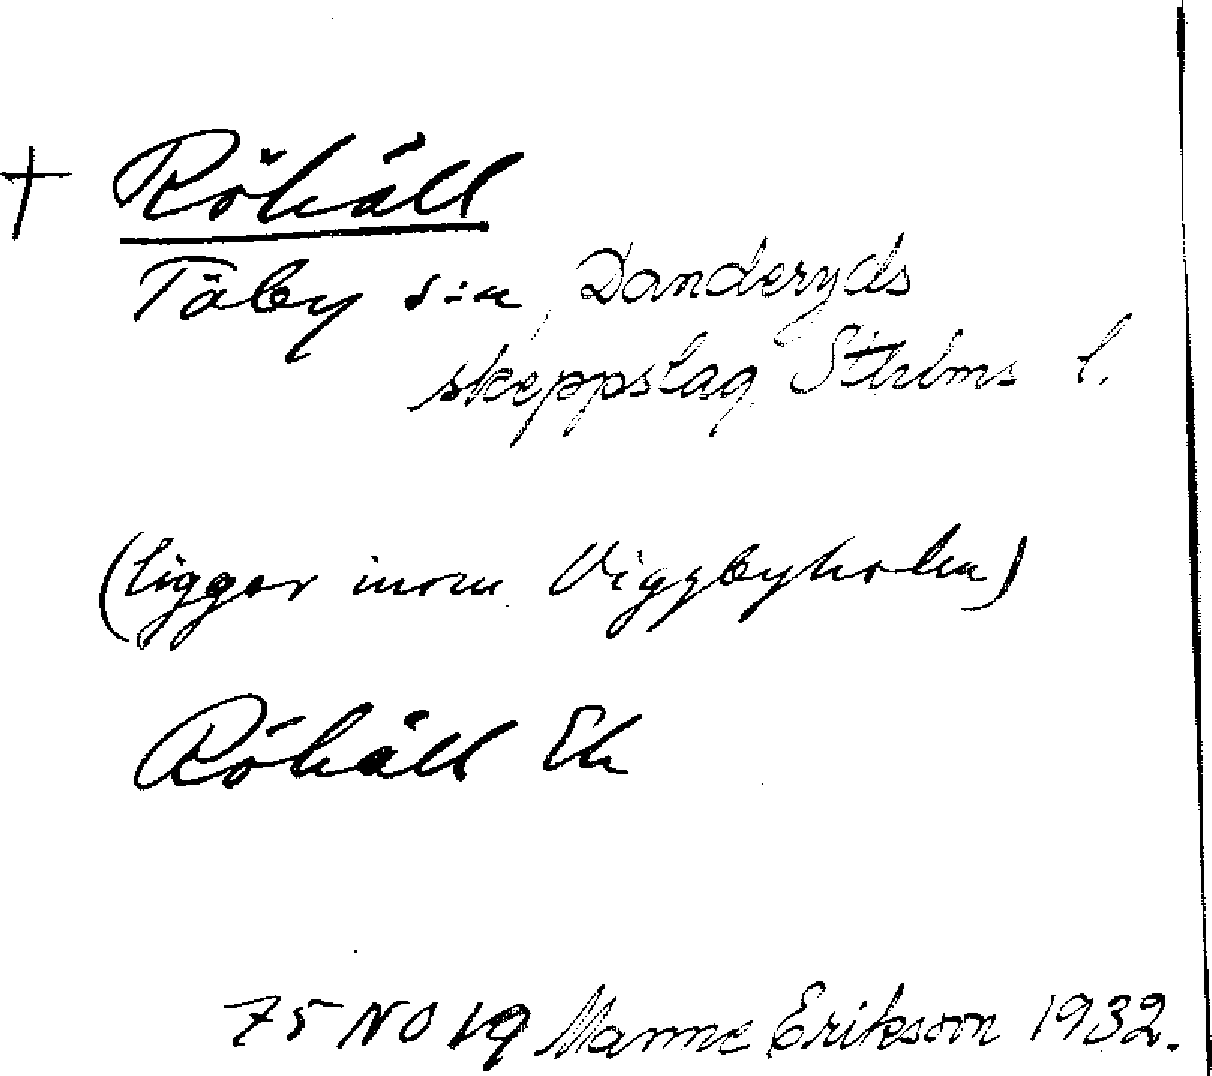 + Röhäll
Täby s:n, Danderyds
skeppslag, Sthlms l.
(ligger inom Viggbyholm)
Röhäll Ek
75 NO Manne Erikson 1932.